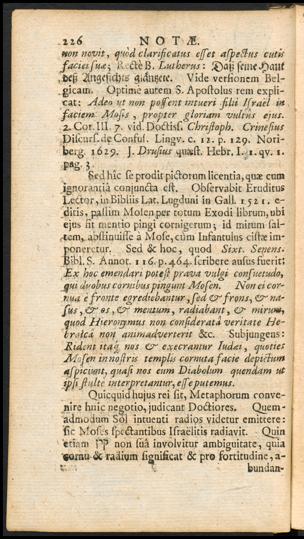 226 NOTÆ.
non novit, quòd clarificatus esses aspectus cutis
faciei suæ; Rectè B. Lutherus: Daß seine Haut
deß Angesichts gläntzete. Vide versionem Bel-
gicam. Optimè autem S. Apostolus rem expli-
cat: Adeo ut non possent intueri filii Israel in
faciem Mosis, propter gloriam vultus ejus.
2. Cor. III. 7. vid. Doctiss. Christoph. Crinesius
Discurs. de Confus. Lingv. c. 12. p. 129. Nori-
berg. 1629. J. Drusius quæst. Hebr. L. 1. qv. 1.
pag. 3.
Sed hîc se prodit pictorum licentia, quæ cum
ignorantiâ conjuncta est. Observabit Eruditus
Lector, in Bibliis Lat. Lugduni in Gall. 1521. e-
ditis, passim Mosen per totum Exodi librum, ubi
ejus fit mentio pingi cornigerum; id mirum sal-
tem, abstinuisse à Mose, cùm Infantulus cistæ im-
poneretur. Sed & hoc, quod Sixt. Senens.
Bibl. S. Annot. 116. p. 464. scribere ausus fuerit:
Ex hoc emendari potest prava vulgi consuetudo,
qui duobus cornibus pingunt Mosen. Non ei cor-
nua è fronte egrediebantur, sed & frons, & na-
sus, & os, & mentum, radiabant, & mirum,
quod Hieronymus non consideratâ veritate He-
braicâ non animadverterit &c. Subjungens:
Rident itaq; nos & execrantur Iudæi, quoties
Mosen in nostris templis cornuta facie depictum
aspiciunt, quasi nos eum Diabolum quendam ut
ipsi stultè interpretantur, esse putemus.
Quicquid hujus rei sit, Metaphorum conve-
nire huic negotio, judicant Doctiores. Quem-
admodum Sol intuenti radios videtur emittere:
sic Moses spectantibus Israëlitis radiavit. Quin
etiam קרן non suâ involvitur ambiguitate, quia
cornu & radium significat & pro fortitudine, a-
bundan-